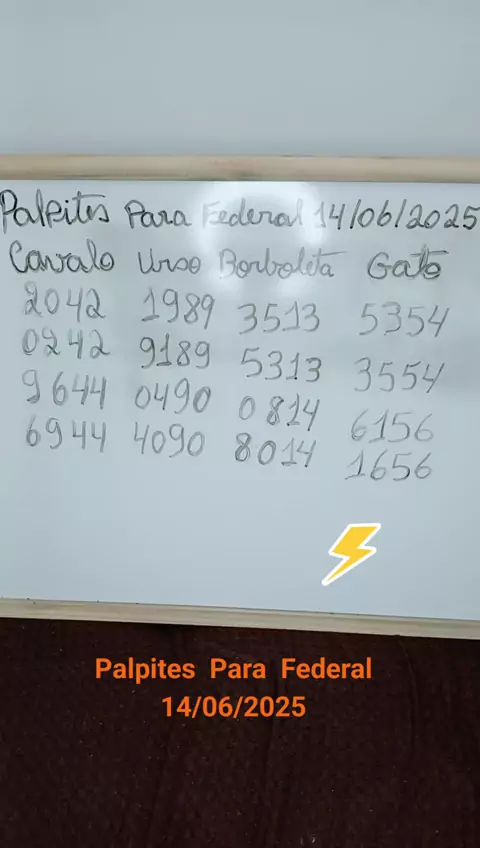 Palpites Para Federal 14/06/2025
Cavalo Urso Borboleta Gato
2042 1989 3513 5354
0242 9189 5313 3554
9644 0490 0814 6156
6944 4090 8014 1656
Palpites Para Federal
14/06/2025